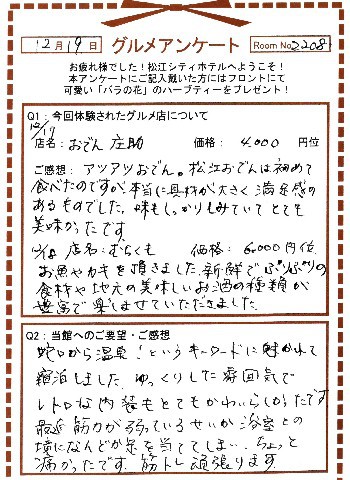 12月19日 グルメアンケート Room No.2208
お疲れ様でした！松江シティホテルへようこそ！
本アンケートにご記入戴いた方にはフロントにて
可愛い「バラの花」のハーブティーをプレゼント！
Q1：今回体験されたグルメ店について
12/17
店名：おでん 庄助 価格： 4,000 円位
ご感想：アツアツおでん。松江おでんは初めて
食べたのですが本当に具材が大きく満足感の
あるものでした。味もしっかりしみていてとても
美味かったです。
12/18 店名：むらくも 価格： 6,000円位
お魚やカキを頂きました。新鮮でぷりぷりの
食材や地元の美味しいお酒の種類が
豊富で楽しませていただきました。
Q2：当館へのご要望・ご感想
蛇口から温泉！というキーワードに魅かれて
宿泊しました。ゆっくりした雰囲気で
レトロな内装もとてもかわいらしかったです
最近筋力が弱っているせいか浴室との
境になんどか足を当ててしまい、ちょっと
痛かったです。筋トレ頑張ります。